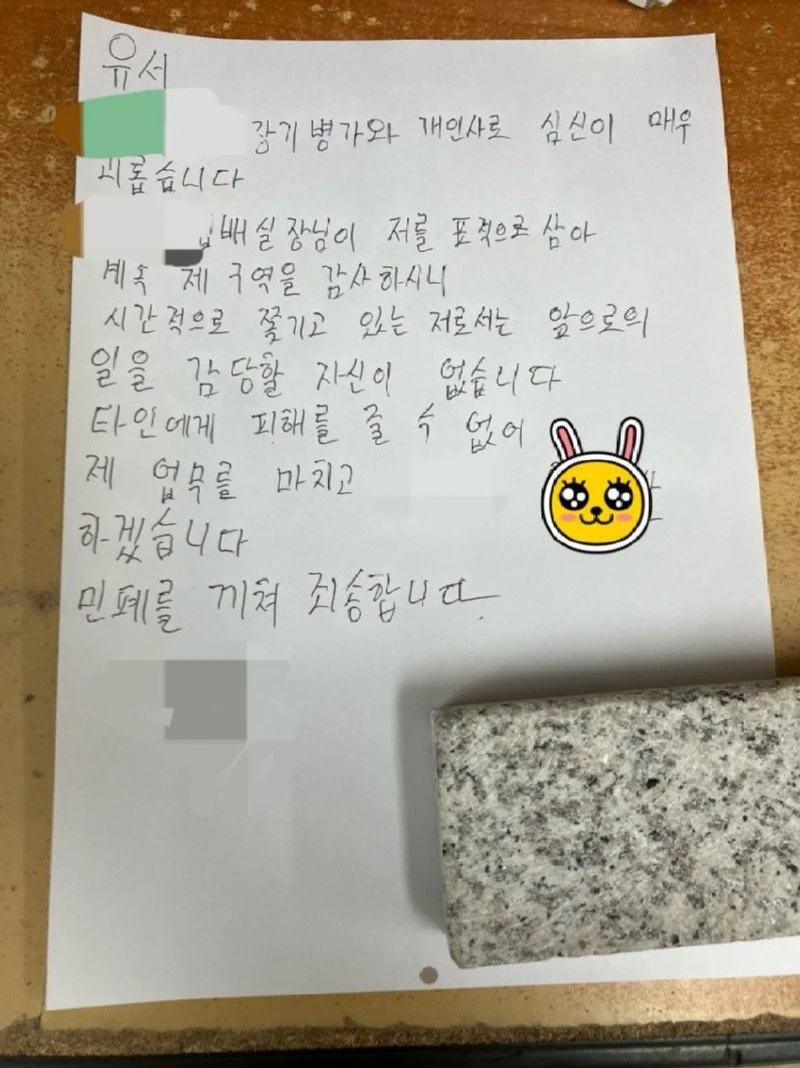 유서
장기병가와 개인사로 심신이 매우
괴롭습니다
집배실장님이 저를 표적으로 삼아
계속 제 구역을 감사하시니
시간적으로 쫓기고 있는 저로서는 앞으로의
일을 감당할 자신이 없습니다
타인에게 피해를 줄 수 없어
제 업무를 마치고
하겠습니다
민폐를 끼쳐 죄송합니다.